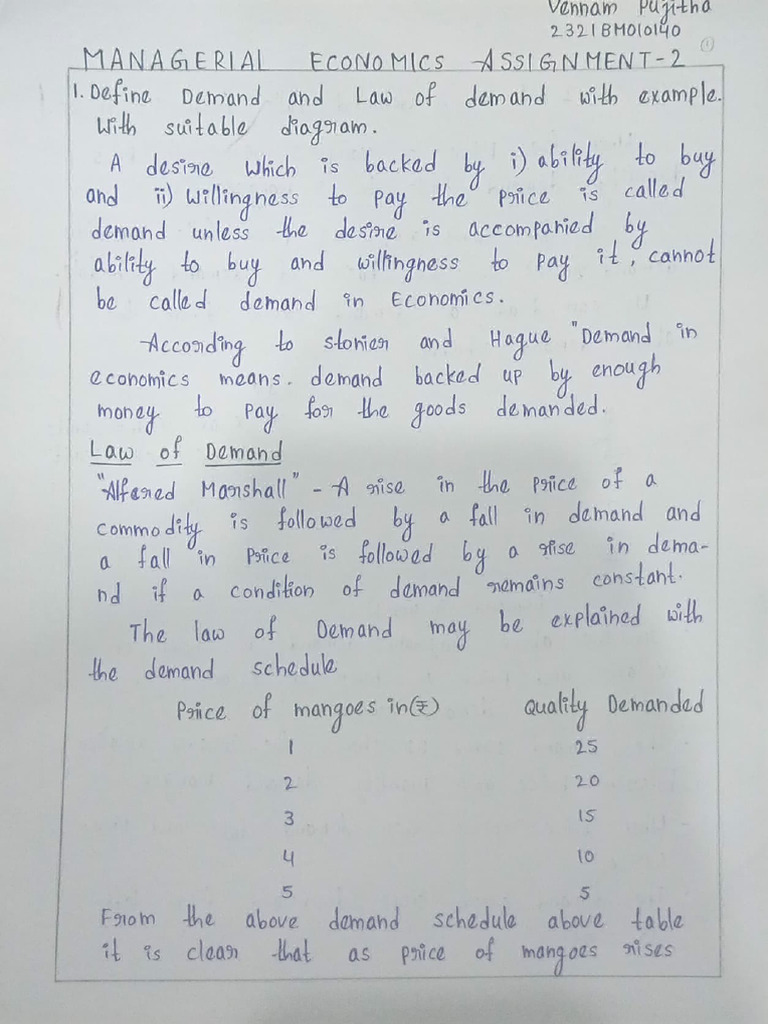 Vennam Pujitha
2321BM010140
1
MANAGERIAL ECONOMICS ASSIGNMENT-2
1. Define Demand and Law of demand with example.
With suitable diagram.
A desire which is backed by i) ability to buy
and ii) Willingness to pay the price is called
demand unless the desire is accompanied by
ability to buy and willingness to pay it, cannot
be called demand in Economics.
According to stonier and Hague "Demand in
economics means. demand backed up by enough
money to pay for the goods demanded.
Law of Demand
"Alfered Marshall" - A rise in the price of a
commodity is followed by a fall in demand and
a fall in Price is followed by a rise in dema-
nd if a condition of demand remains constant.
The law of Demand may be explained with
the demand schedule
Price of mangoes in(₹) Quality Demanded
1 25
2 20
3 15
4 10
5 5
From the above demand schedule above table
it is clear that as price of mangoes rises